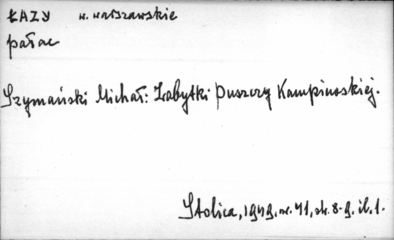 ŁAZY w. warszawskie
pałac
Szymański Michał: Zabytki Puszczy Kampinoskiej.
Stolica, 1949, nr. 41, str. 8-9. il. 1.